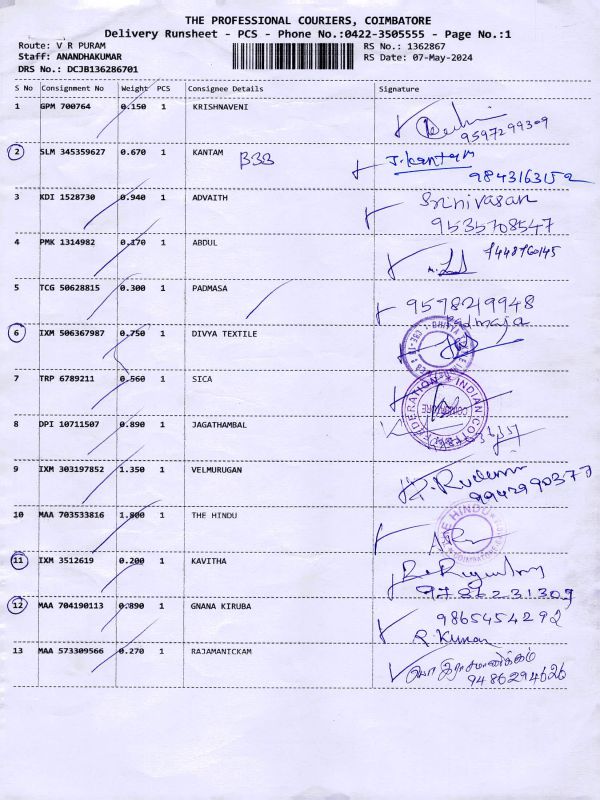 THE PROFESSIONAL COURIERS, COIMBATORE
Delivery Runsheet - PCS - Phone No.:0422-3505555 - Page No.:1
Route: V R PURAM RS No.: 1362867
Staff: ANANDHAKUMAR RS Date: 07-May-2024
DRS No.: DCJB136286701
S No Consignment No Weight PCS Consignee Details Signature
1 GPM 700764 0.150 1 KRISHNAVENI
9597299309
2 SLM 345359627 0.670 1 KANTAM BBB J. Kantam
9843163152
3 KDI 1528730 0.940 1 ADVAITH Srinivasan
9535708547
4 PMK 1314982 0.370 1 ABDUL
5 TCG 50628815 0.300 1 PADMASA 9578219948
Padmaja
6 IXM 506367987 0.750 1 DIVYA TEXTILE
7 TRP 6789211 0.560 1 SICA
8 DPI 10711507 0.890 1 JAGATHAMBAL
9 IXM 303197852 1.350 1 VELMURUGAN
9942990377
10 MAA 703533816 1.800 1 THE HINDU
THE HINDU
COIMBATORE
11 IXM 3512619 0.200 1 KAVITHA
12 MAA 704190113 0.890 1 GNANA KIRUBA 9865454292
R. Kumar
13 MAA 573309566 0.270 1 RAJAMANICKAM இராசமாணிக்கம்
9486294626